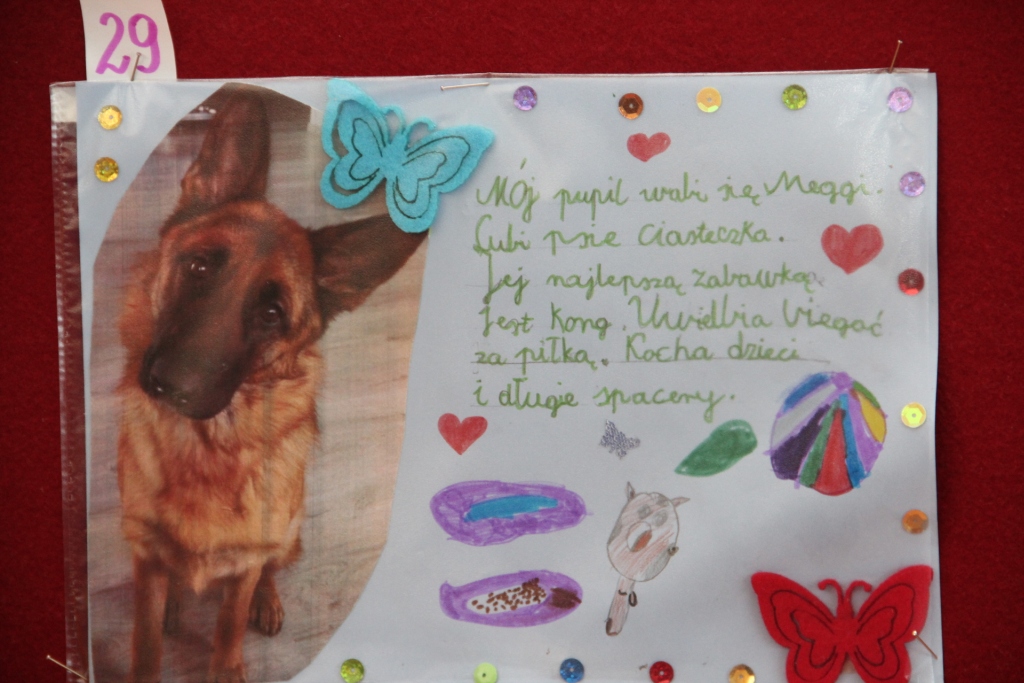 29
Mój pupil wabi się Meggi.
Lubi psie ciasteczka.
Jej najlepszą zabawką
jest kong. Uwielbia biegać
za piłką. Kocha dzieci
i długie spacery.